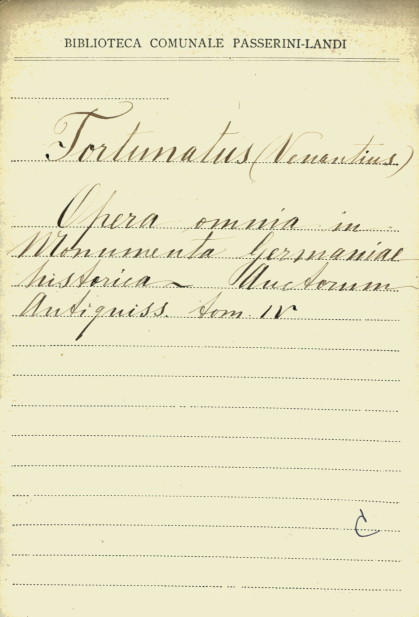 BIBLIOTECA COMUNALE PASSERINI-LANDI
Fortunatus (Venantius)
Opera omnia in
Monumenta Germaniae
historica - Auctorum
Antiquiss. tom. IV
C